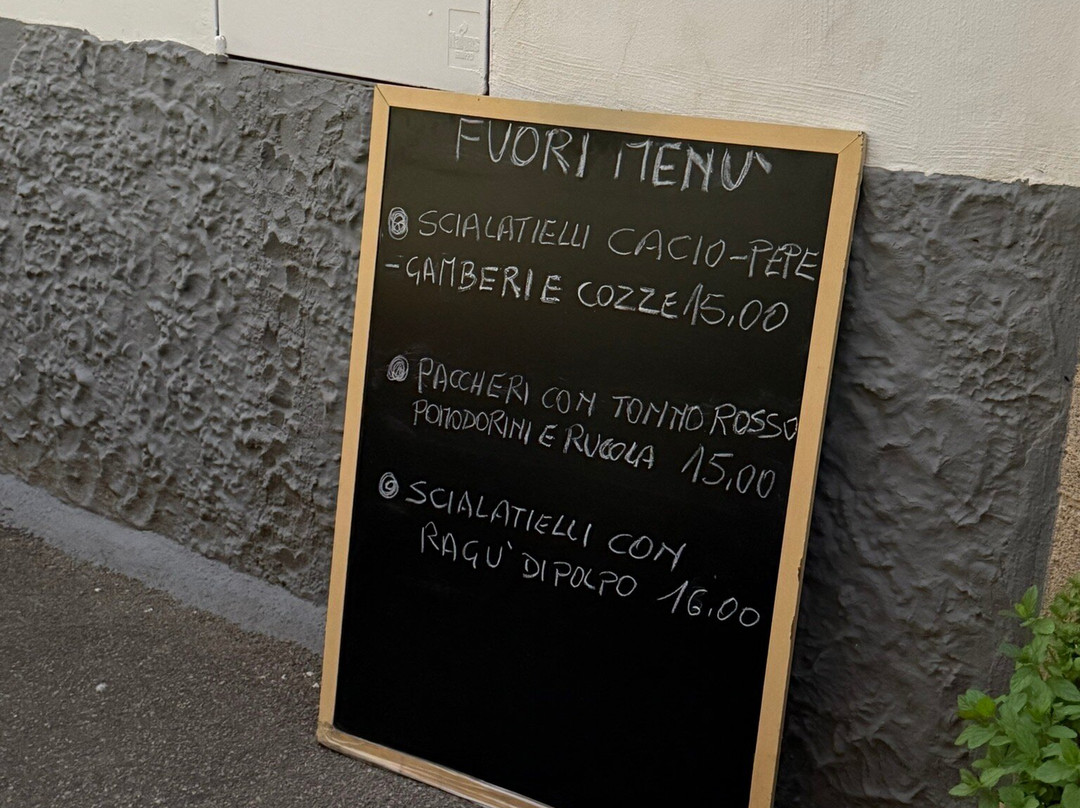 FUORI MENU'
SCIALATIELLI CACIO-PEPE
-GAMBERI E COZZE 15,00
PACCHERI CON TONNO ROSSO
POMODORINI E RUCOLA 15,00
SCIALATIELLI CON
RAGU' DI POLPO 16,00